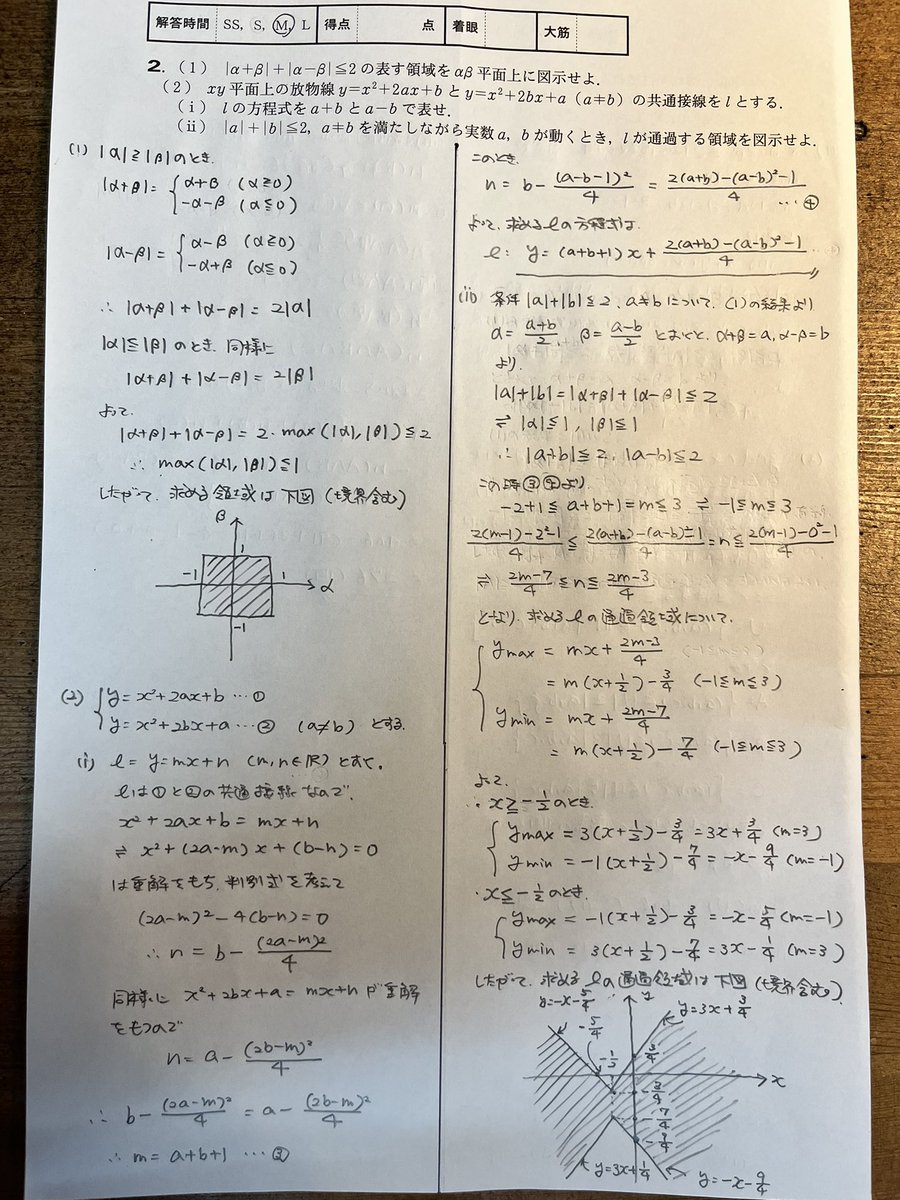 解答時間 SS, S, M, L 得点 点 着眼 大筋
2. (1) |α+β|+|α−β|≦2の表す領域をαβ平面上に図示せよ.
(2) xy平面上の放物線y=x²+2ax+bとy=x²+2bx+a (a≠b) の共通接線をlとする.
(i) lの方程式をa+bとa−bで表せ.
(ii) |a|+|b|≦2, a≠bを満たしながら実数a, bが動くとき, lが通過する領域を図示せよ.
(1) |α|≧|β|のとき.
|α+β|= { α+β (α≧0)
-α-β (α≦0)
|α-β|= { α-β (α≧0)
-α+β (α≦0)
∴ |α+β|+|α-β|= 2|α|
|α|≦|β|のとき, 同様に
|α+β|+|α-β|= 2|β|
よって.
|α+β|+|α-β|= 2・max(|α|,|β|)≦2
∴ max(|α|,|β|)≦1
したがって, 求める領域は下図(境界含む)
β
1
-1 1 α
-1
(2) { y=x²+2ax+b …①
y=x²+2bx+a …② (a≠b) とする.
(i) l= y=mx+n (m,n∈ℝ) とおく。
lは①と②の共通接線なので.
x²+2ax+b=mx+n
⇌ x²+(2a-m)x+(b-n)=0
は重解をもち, 判別式を考えて
(2a-m)²-4(b-n)=0
∴ n= b- (2a-m)²/4
同様に x²+2bx+a=mx+n が重解
をもつので
n= a- (2b-m)²/4
∴ b- (2a-m)²/4 = a- (2b-m)²/4
∴ m= a+b+1 …③
このとき.
n= b- (a-b-1)²/4 = 2(a+b)-(a-b)²-1/4 …④
よって, 求めるlの方程式は
l: y=(a+b+1)x+ 2(a+b)-(a-b)²-1/4
(ii) 条件 |a|+|b|≦2, a≠bについて, (1)の結果より
α= a+b/2, β= a-b/2 とおくと, α+β=a, α-β=b
より.
|a|+|b|=|α+β|+|α-β|≦2
⇌ |α|≦1, |β|≦1
∴ |a+b|≦2, |a-b|≦2
この時③④より.
-2+1≦ a+b+1=m≦3 ⇌ -1≦m≦3
2(m-1)-2²-1/4 ≦ 2(a+b)-(a-b)²-1/4 =n≦ 2(m-1)-0²-1/4
⇌ 2m-7/4 ≦n≦ 2m-3/4
となり, 求めるlの通過領域について.
{ ymax = mx+ 2m-3/4
= m(x+1/2)-3/4 (-1≦m≦3)
ymin = mx+ 2m-7/4
= m(x+1/2)- 7/4 (-1≦m≦3)
よって
・x≧-1/2のとき.
{ ymax = 3(x+1/2)-3/4 =3x+3/4 (m=3)
ymin = -1(x+1/2)-7/4 =-x-9/4 (m=-1)
・x≦-1/2のとき.
{ ymax = -1(x+1/2)-3/4 =-x-5/4 (m=-1)
ymin = 3(x+1/2)-7/4 =3x-1/4 (m=3)
したがって, 求めるlの通過領域は下図(境界含む)
y=-x-5/4 y y=3x+3/4
-5/4 -1/2 3/4
x
-3/4
-7/4
y=3x+1/4 y=-x-9/4